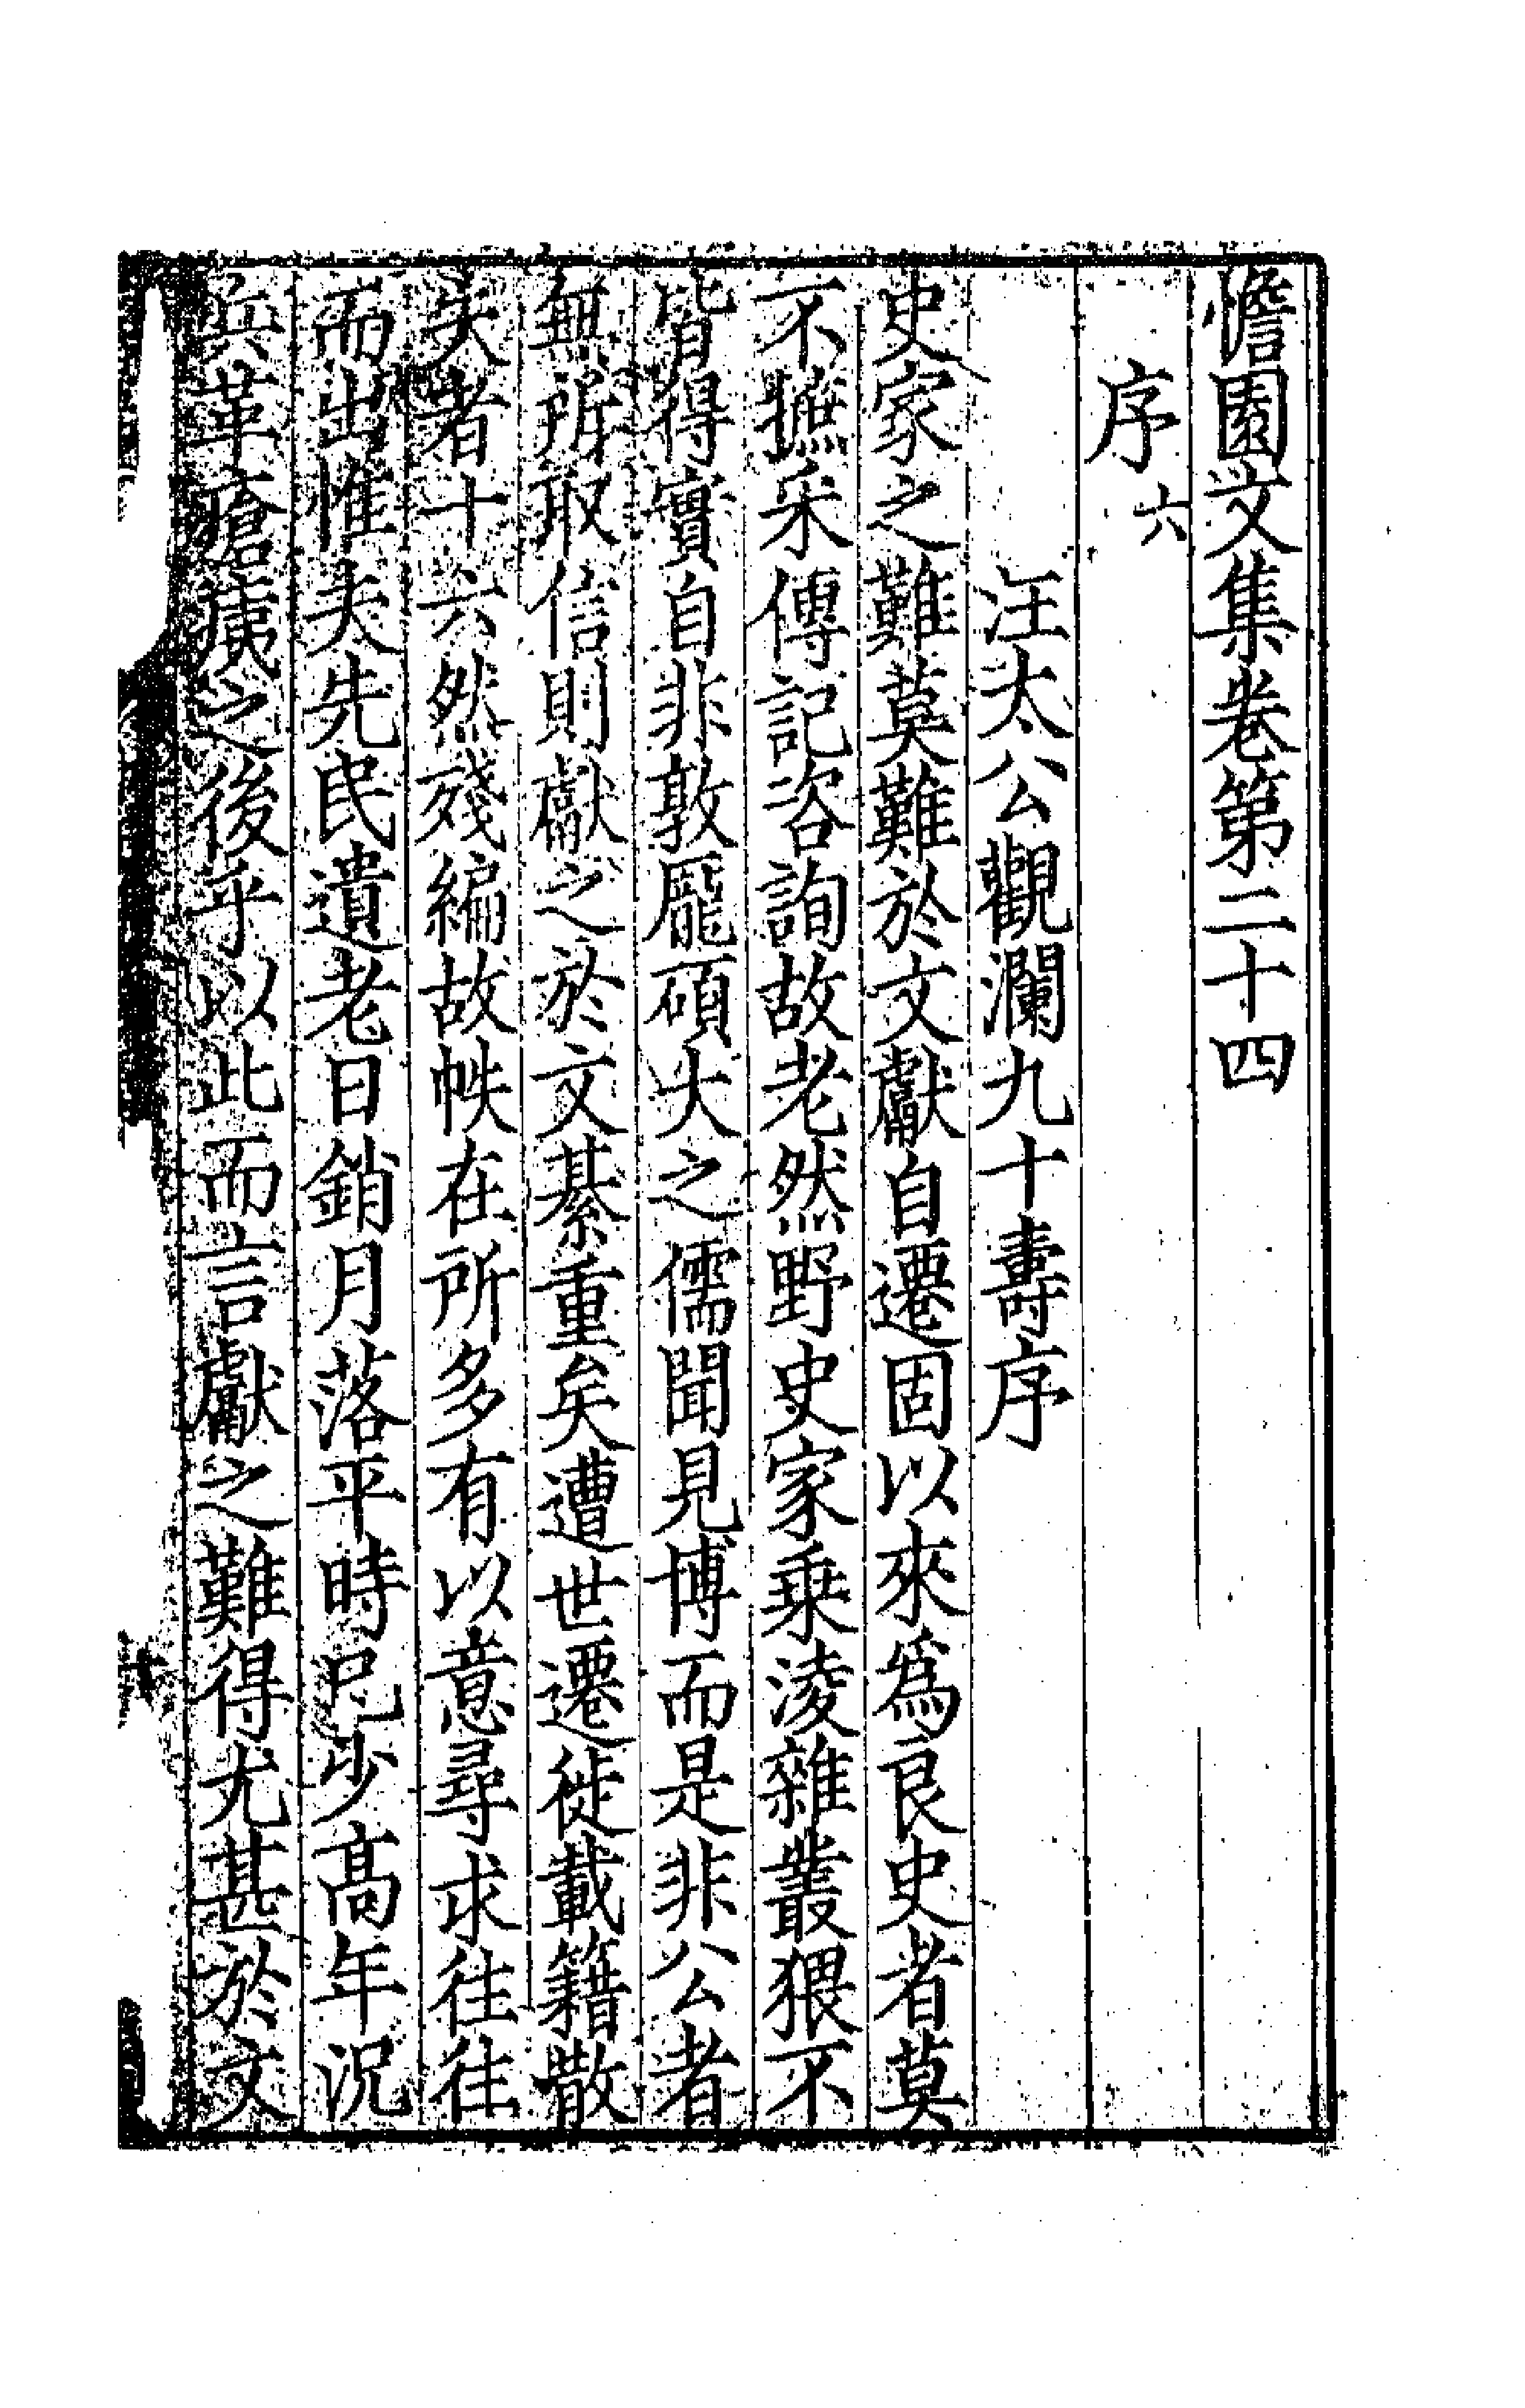 憺園文集卷第二十四
序六
汪太公觀瀾九十壽序
史家之難莫難於文獻自遷固以來爲良史者莫
不摭采傳記咨詢故老然野史家乘淩雜叢猥不
皆得實自非敦龎碩大之儒聞見博而是非公者
無所取信則獻之於文綦重矣遭世遷徙載籍散
失者十六然殘編故帙在所多有以意尋求往往
而出惟夫先民遺老日銷月落平時已少高年況
兵革瘡痍之後乎以此而言獻之難得尤甚於文